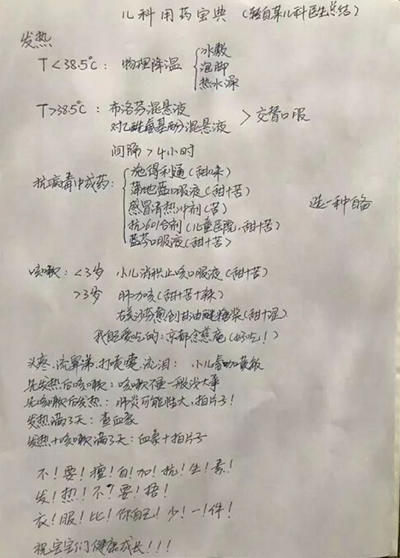 儿科用药宝典 (转自某儿科医生总结)
发热
T<38.5℃: 物理降温 冰敷
泡脚
热水澡
T>38.5℃: 布洛芬混悬液
对乙酰氨基酚混悬液 > 交替口服
间隔>4小时
抗病毒中成药: 施得利通(甜味)
蒲地蓝口服液(甜+苦)
感冒清热冲剂(苦)
抗601合剂(儿童医院,甜+苦)
蓝芩口服液(甜+苦)
选一种自备
咳嗽: <3岁 小儿消积止咳口服液(甜+苦)
>3岁 肺力咳(甜+苦+辣)
右美沙芬愈创甘油醚糖浆(甜+涩)
我最爱吃的: 京都念慈庵(好吃!)
头疼、流鼻涕、打喷嚏、流泪: 小儿氨咖黄敏
先发热后咳嗽: 咳嗽不重一般没大事
先咳嗽后发热: 肺炎可能性大,拍片子!
发热满3天: 查血象
发热+咳嗽满3天: 血象+拍片子
不!要!擅!自!加!抗!生!素!
发!热!不!要!捂!
衣!服!比!你自己!少!一!件!
祝宝宝们健康成长!!!